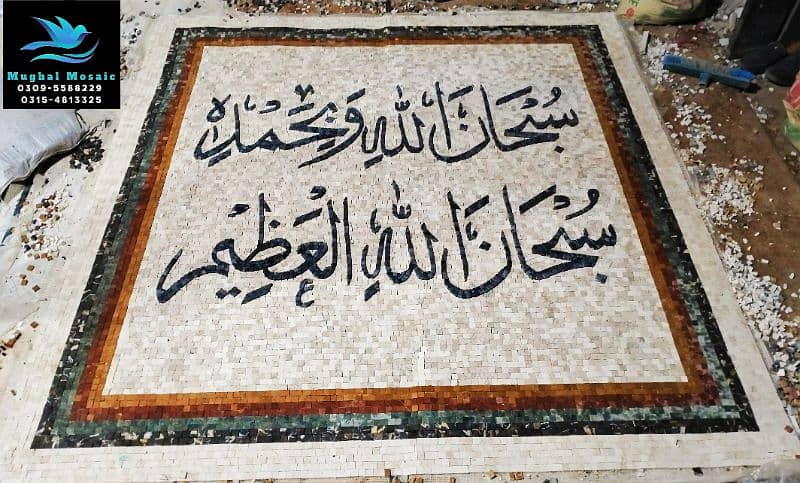 Mughal Mosaic
0309-5588229
0315-4813325
سُبْحَانَ اللهِ وَبِحَمْدِهٖ
سُبْحَانَ اللهِ الْعَظِيْمِ